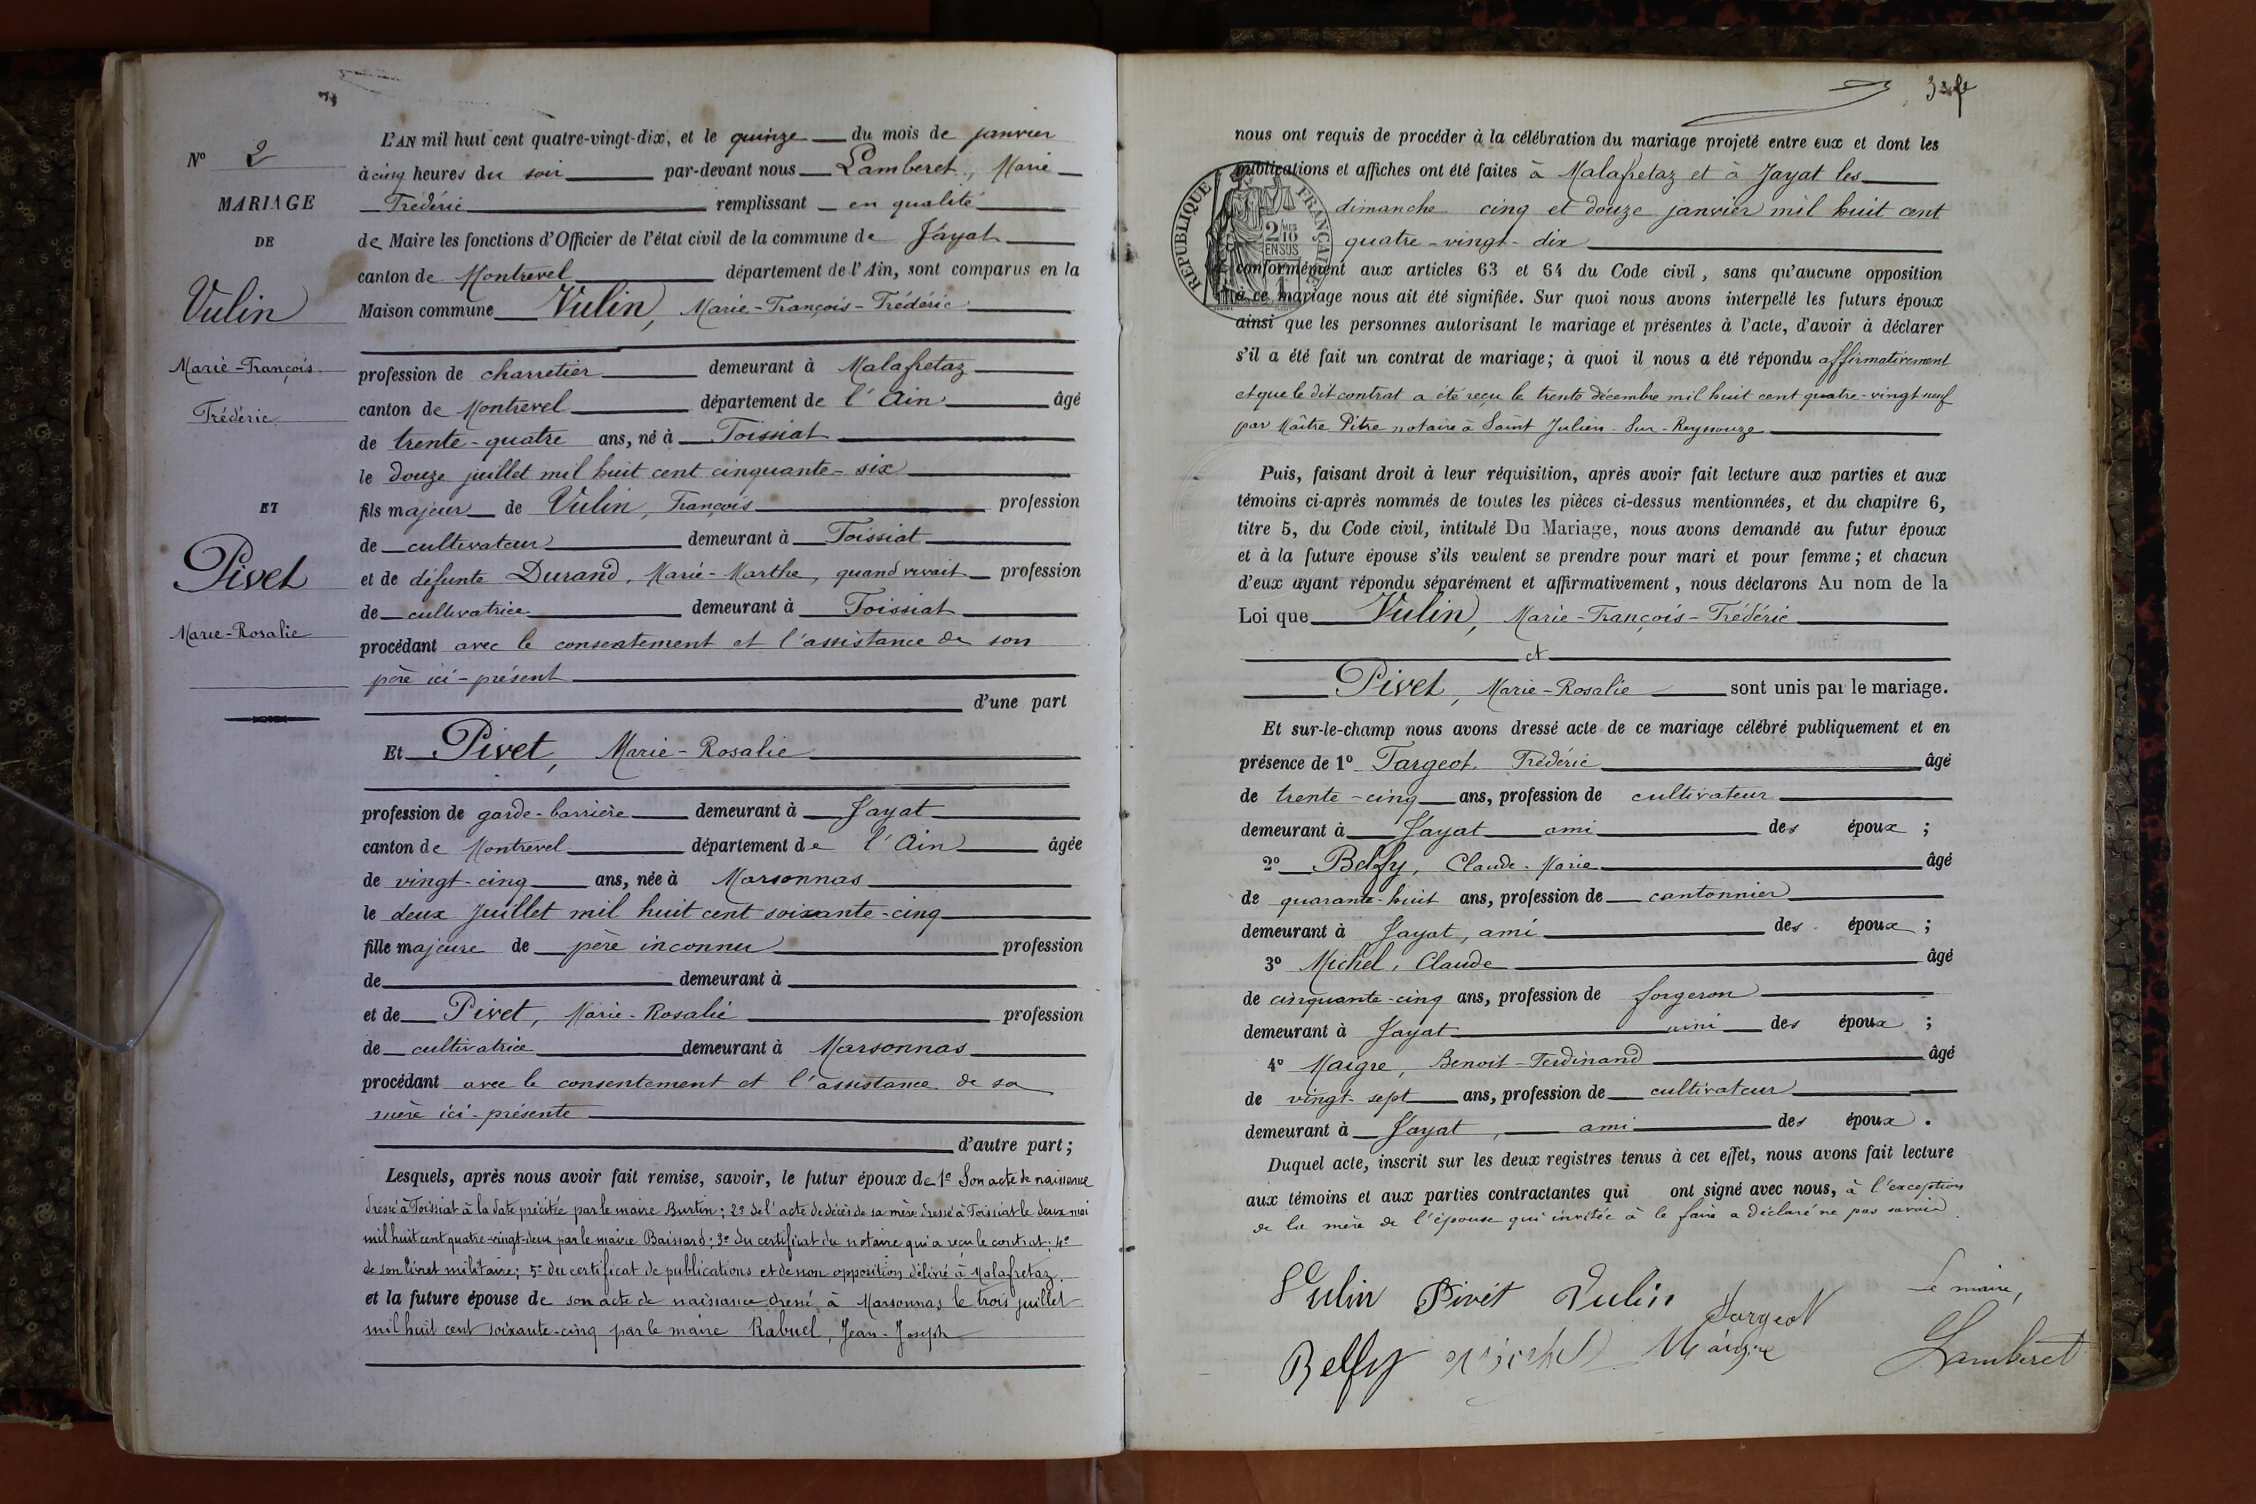 N° 2
MARIAGE
DE
Vulin
Marie-François
Frédéric
ET
Pivet
Marie-Rosalie
L'AN mil huit cent quatre-vingt-dix, et le quinze du mois de janvier
à cinq heures du soir par-devant nous Lamberet, Marie
Frédéric remplissant en qualité
de Maire les fonctions d'Officier de l'état civil de la commune de Jayat
canton de Montrevel département de l'Ain, sont comparus en la
Maison commune Vulin, Marie-François-Frédéric
profession de charretier demeurant à Malafretaz
canton de Montrevel département de l'Ain âgé
de trente-quatre ans, né à Toissiat
le douze juillet mil huit cent cinquante-six
fils majeur de Vulin, François profession
de cultivateur demeurant à Toissiat
et de défunte Durand, Marie-Marthe, quand vivait profession
de cultivatrice demeurant à Toissiat
procédant avec le consentement et l'assistance de son
père ici-présent
d'une part
Et Pivet, Marie-Rosalie
profession de garde-barrière demeurant à Jayat
canton de Montrevel département de l'Ain âgée
de vingt-cinq ans, née à Marsonnas
le deux Juillet mil huit cent soixante-cinq
fille majeure de père inconnu profession
de demeurant à
et de Pivet, Marie-Rosalie profession
de cultivatrice demeurant à Marsonnas
procédant avec le consentement et l'assistance de sa
mère ici-présente
d'autre part;
Lesquels, après nous avoir fait remise, savoir, le futur époux de 1° Son acte de naissance
dressé à Toissiat à la date précitée par le maire Burtin; 2° de l'acte de décès de sa mère dressé à Toissiat le deux mai
mil huit cent quatre-vingt-deux par le maire Baissard; 3° du certificat du notaire qui a reçu le contrat; 4°
de son livret militaire; 5° du certificat de publications et de non opposition délivré à Malafretaz.
et la future épouse de son acte de naissance dressé à Marsonnas le trois juillet
mil huit cent soixante-cinq par le maire Rabuel, Jean-Joseph
nous ont requis de procéder à la célébration du mariage projeté entre eux et dont les
publications et affiches ont été faites à Malafretaz et à Jayat les
dimanche cinq et douze janvier mil huit cent
quatre-vingt-dix
RÉPUBLIQUE FRANÇAISE
2 MES 10
EN SUS
conformément aux articles 63 et 64 du Code civil, sans qu'aucune opposition
à ce mariage nous ait été signifiée. Sur quoi nous avons interpellé les futurs époux
ainsi que les personnes autorisant le mariage et présentes à l'acte, d'avoir à déclarer
s'il a été fait un contrat de mariage; à quoi il nous a été répondu affirmativement
et que le dit contrat a été reçu le trente décembre mil huit cent quatre-vingt neuf
par Maître Pitre notaire à Saint Julien-Sur-Reyssouze
Puis, faisant droit à leur réquisition, après avoir fait lecture aux parties et aux
témoins ci-après nommés de toutes les pièces ci-dessus mentionnées, et du chapitre 6,
titre 5, du Code civil, intitulé Du Mariage, nous avons demandé au futur époux
et à la future épouse s'ils veulent se prendre pour mari et pour femme; et chacun
d'eux ayant répondu séparément et affirmativement, nous déclarons Au nom de la
Loi que Vulin, Marie-François-Frédéric
et
Pivet, Marie-Rosalie sont unis par le mariage.
Et sur-le-champ nous avons dressé acte de ce mariage célébré publiquement et en
présence de 1° Fargeot Frédéric âgé
de trente-cinq ans, profession de cultivateur
demeurant à Jayat ami des époux;
2° Belfy, Claude-Marie âgé
de quarante-huit ans, profession de cantonnier
demeurant à Jayat, ami des époux;
3° Michel, Claude âgé
de cinquante-cinq ans, profession de forgeron
demeurant à Jayat ami des époux;
4° Maigre, Benoit-Ferdinand âgé
de vingt-sept ans, profession de cultivateur
demeurant à Jayat, ami des époux.
Duquel acte, inscrit sur les deux registres tenus à cet effet, nous avons fait lecture
aux témoins et aux parties contractantes qui ont signé avec nous, à l'exception
de la mère de l'épouse qui invitée à le faire a déclaré ne pas savoir.
Vulin Pivet Vulin Fargeot Le maire,
Belfy Michel Maigre Lamberet